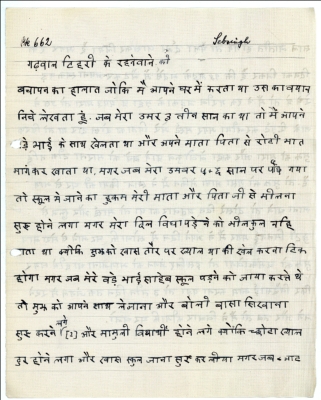 PK 662
Sebsingh
गढ़वाल टिहरी के रहनेवाले की
बचापन का हालात जोकि मै आपने घर में करता था उस का बयान
निचे लेखता हूं. जब मेरा उमर ३ तीन साल का था तो मैं आपने
बड़े भाई के साथ खेलता था और अपने माता पिता से रोटी भात
मांगकर खाता था, मगर जब मेरा उमवर ५-६ साल पर पौंछ गया
तो स्कूल में जाने का हुकम मेरी माता और पिता जी से मीलना
सुरु होने लगा मगर मेरा दिल विद्या पड़ेने को मीलकुल नहि
था क्योंकि मुझको खास तौर पर ख्याल था की खेल करना ठिक
होगा मगर जब मेरे बड़े भाई साहेब स्कूल पड़ने को जाया करते थे
तो मुझ को आपने साथ लेजाना और बोली बासा सिखाना
सुरु करने लगे [2] और मामुली विद्यार्थी होने लगे क्योंकि छोटा ख्याल
दुर होने लगा और खास स्कुल जाना सुरु कर लीया मगर जब